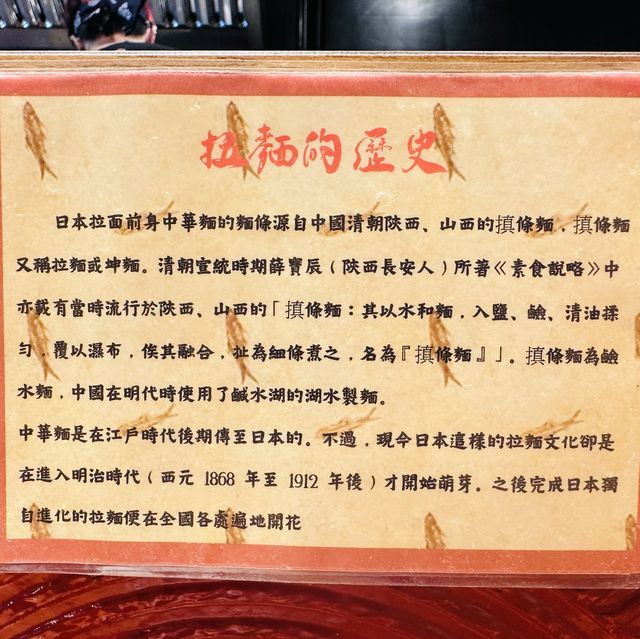 拉麵的歷史
日本拉面前身中華麵的麵條源自中國清朝陝西、山西的搷條麵，搷條麵
又稱拉麵或坤麵。清朝宣統時期薛寶辰（陝西長安人）所著《素食說略》中
亦載有當時流行於陝西、山西的「搷條麵：其以水和麵，入鹽、鹼、清油揉
勻，覆以瀑布，俟其融合，扯為細條煮之，名為『搷條麵』」。搷條麵為鹼
水麵，中國在明代時使用了鹹水湖的湖水製麵。
中華麵是在江戶時代後期傳至日本的。不過，現今日本這樣的拉麵文化卻是
在進入明治時代（西元 1868 年至 1912 年後）才開始萌芽。之後完成日本獨
自進化的拉麵便在全國各處遍地開花